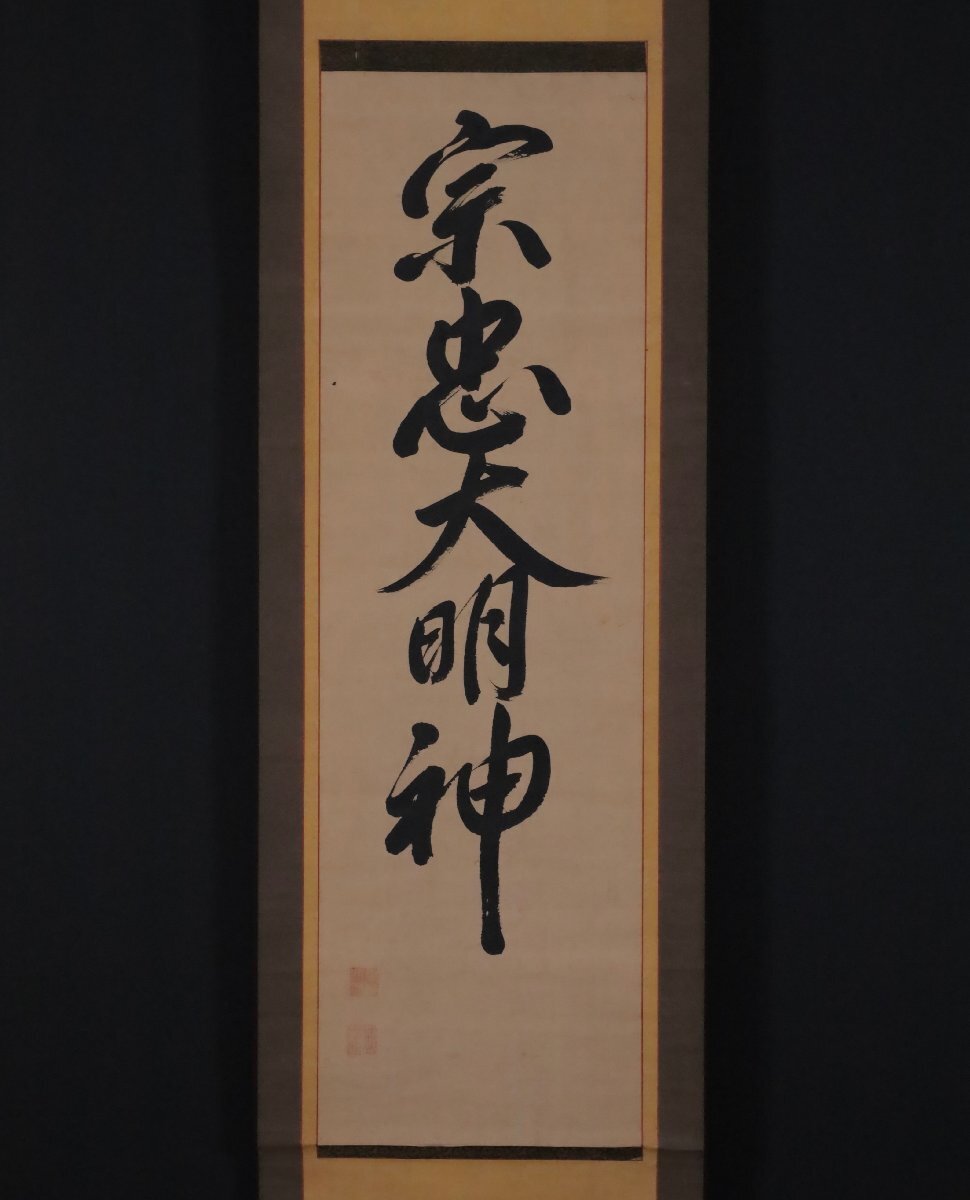 宗忠大明神